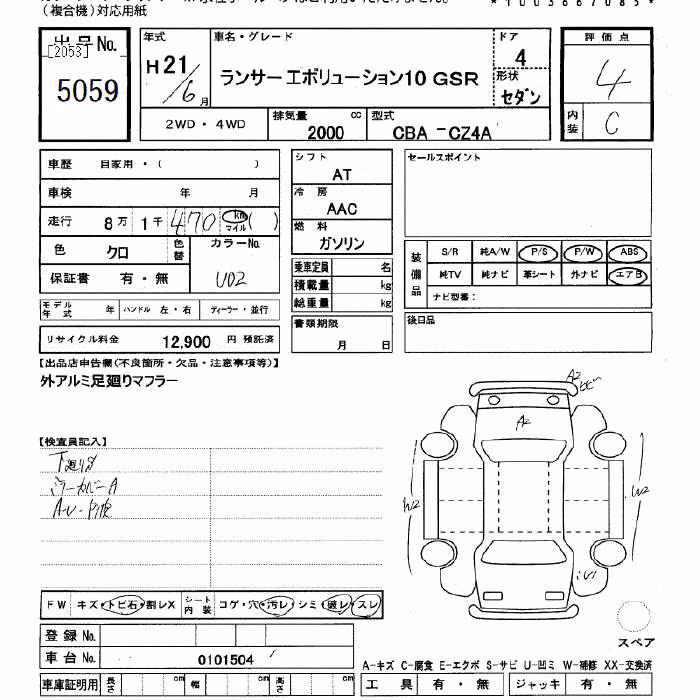 (複合機)対応用紙
*1003667085*
出品No.
[2053]
5059
年式
H21/6月
車名・グレード
ランサーエボリューション10 GSR
ドア
4
形状
セダン
評価点
4
内装
C
2WD・4WD
排気量
2000
cc
型式
CBA -CZ4A
車歴 自家用・( )
車検 年 月
走行 8万 1千 470 km マイル ( )
色 クロ
色替
カラーNo.
U02
保証書 有・無
モデル年式 年
ハンドル 左・右
ディーラー・並行
リサイクル料金 12,900 円 預託済
シフト
AT
冷房
AAC
燃料
ガソリン
乗車定員 名
積載量 kg
総重量 kg
書類期限
月 日
セールスポイント
装備品
S/R 純A/W P/S P/W ABS
純TV 純ナビ 革シート 外ナビ エアB
ナビ型番:
後日品
【出品店申告欄(不良箇所・欠品・注意事項等)】
外アルミ足廻りマフラー
【検査員記入】
下廻りS
ミラーカバーA
A2
A2
W2
W2
U1
FW キズ・トビ石・割レX
シート内装 コゲ・穴・汚レ・シミ・破レ・スレ
登録No.
車台No. 0101504
車庫証明用 長さ cm 幅 cm 高さ cm
スペア
A-キズ C-腐食 E-エクボ S-サビ U-凹ミ W-補修 XX-交換済
工具 有・無 ジャッキ 有・無